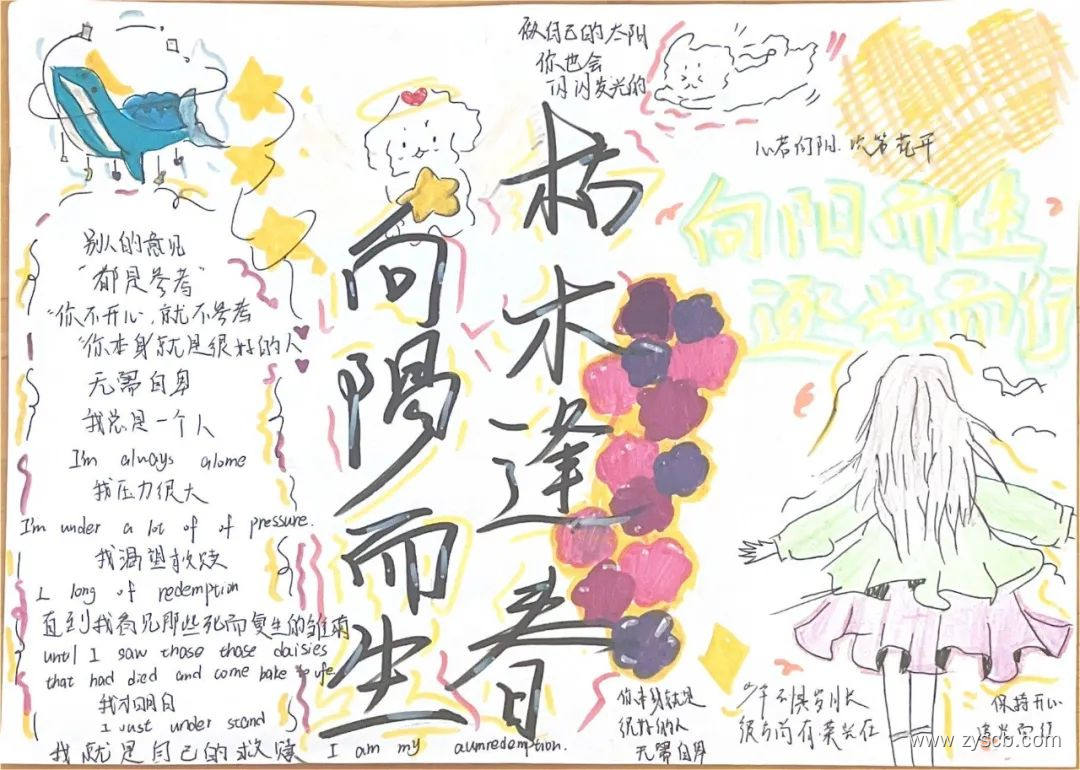 做自己的太阳
你也会
闪闪发光的
心若向阳.次第花开
向阳而生
逐光而行
枯木逢春
向陽而生
别人的意见
"都是参考"
"你不开心,就不参考
"你本身就是很好的人
无需自卑
我总是一个人
I'm always alome
我压力很大
I'm under a lot of of pressure.
我渴望救赎
I long of redemption
直到我看见那些死而复生的雏菊
until I saw those those daisies
that had died and come bake to life.
我才明白
I Just under stand
我就是自己的救赎
I am my aumredemption.
你本身就是
很好的人
无需自卑
少年不惧岁月长
彼方尚有荣光在
保持开心
追光而行
www.zyscb.com